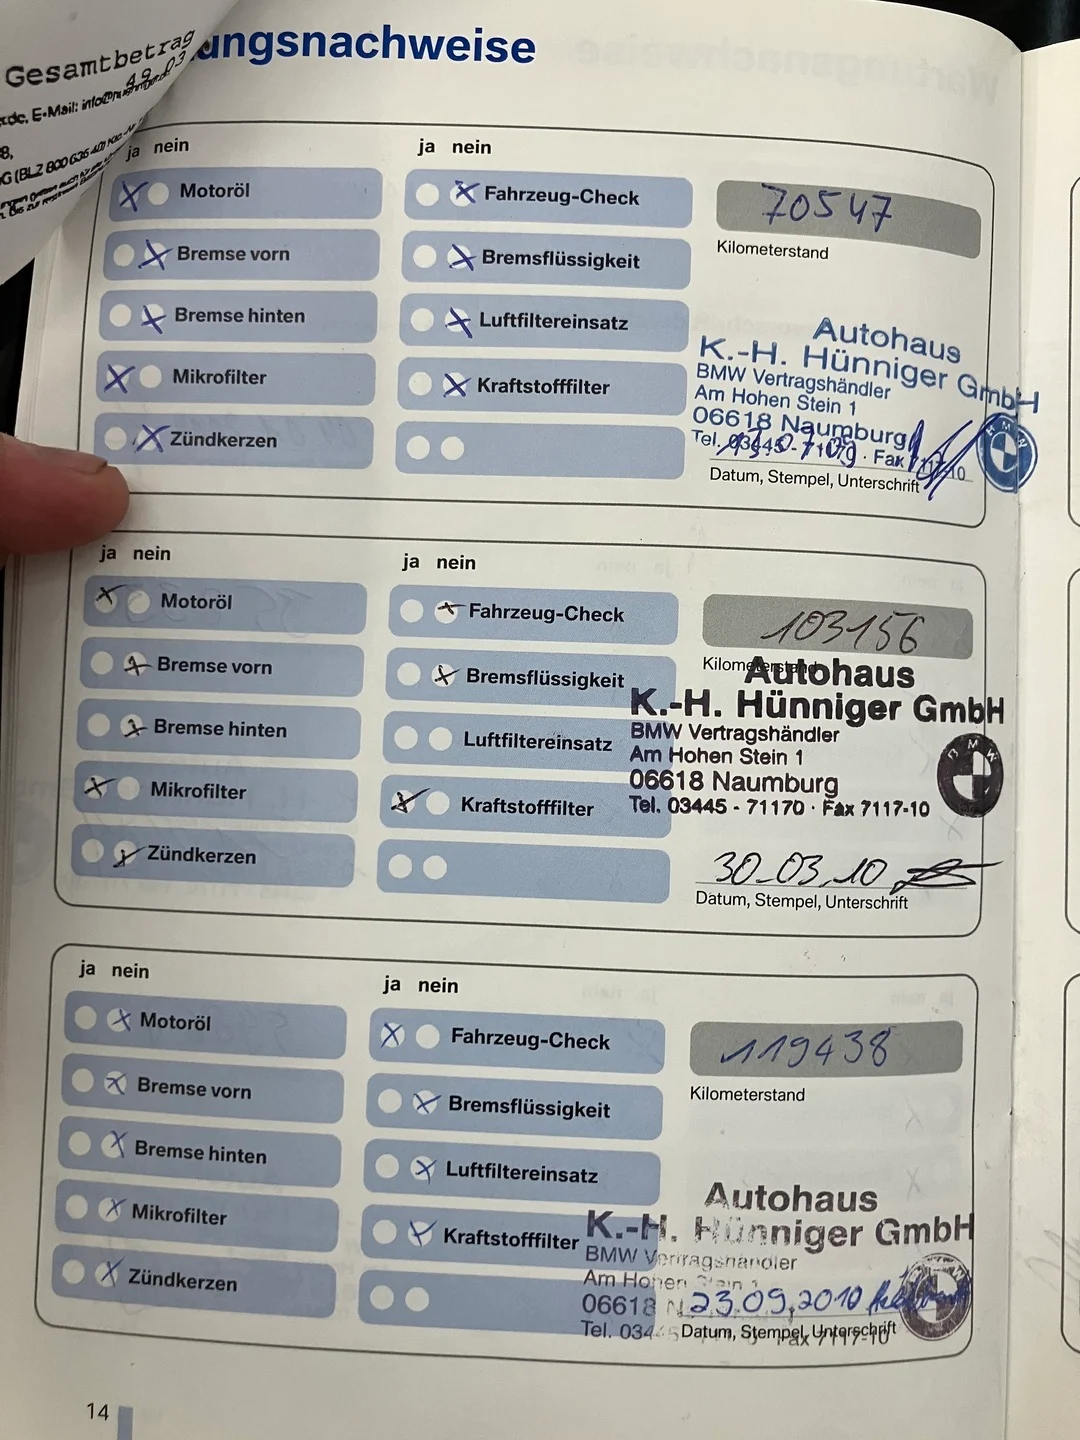 Gesamtbetrag
49 03
E-Mail:
ungsnachweise
ja nein
Motoröl
Bremse vorn
Bremse hinten
Mikrofilter
Zündkerzen
ja nein
Fahrzeug-Check
Bremsflüssigkeit
Luftfiltereinsatz
Kraftstofffilter
70547
Kilometerstand
Autohaus
K.-H. Hünniger GmbH
BMW Vertragshändler
Am Hohen Stein 1
06618 Naumburg
Tel. 03445 - Fax 7117-10
BMW
Datum, Stempel, Unterschrift
ja nein
Motoröl
Bremse vorn
Bremse hinten
Mikrofilter
Zündkerzen
ja nein
Fahrzeug-Check
Bremsflüssigkeit
Luftfiltereinsatz
Kraftstofffilter
103156
Kilometerstand
Autohaus
K.-H. Hünniger GmbH
BMW Vertragshändler
Am Hohen Stein 1
06618 Naumburg
Tel. 03445 - 71170 · Fax 7117-10
BMW
30.03.10
Datum, Stempel, Unterschrift
ja nein
Motoröl
Bremse vorn
Bremse hinten
Mikrofilter
Zündkerzen
ja nein
Fahrzeug-Check
Bremsflüssigkeit
Luftfiltereinsatz
Kraftstofffilter
119438
Kilometerstand
Autohaus
K.-H. Hünniger GmbH
BMW Vertragshändler
Am Hohen Stein 1
06618
23.09.2010
Tel. Fax 7117-10
Datum, Stempel, Unterschrift
14